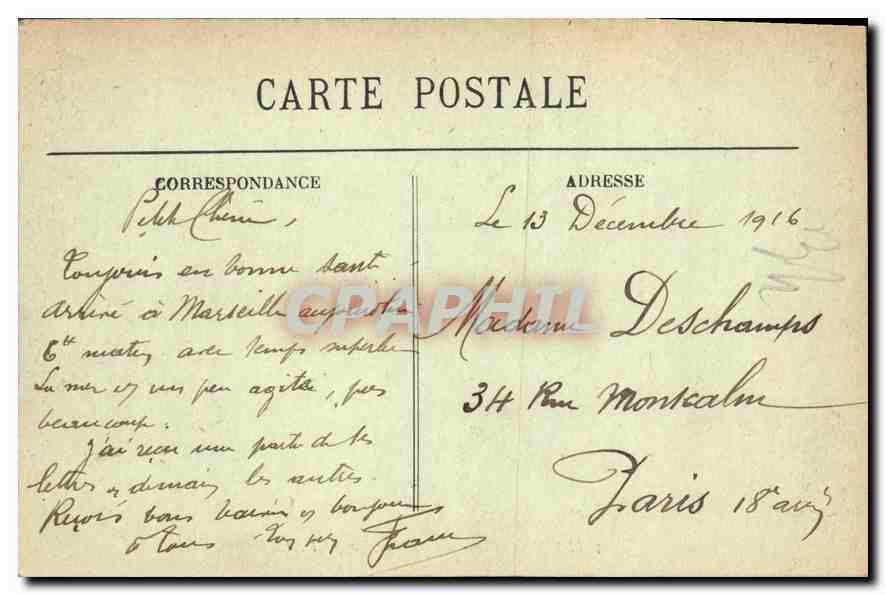 CARTE POSTALE
CORRESPONDANCE
Petit Chérie,
Toujours en bonne santé
arrivé à Marseille aujourd'hui
6h matin avec temps superbe
La mer est un peu agitée, pas
beaucoup.
J'ai reçu une partie de tes
lettres et demain les autres.
Reçois bons baisers et bonjour
à tous
ADRESSE
Le 13 Décembre 1916
Madame Deschamps
34 Rue Montcalm
Paris 18e arr
CPAPHIL